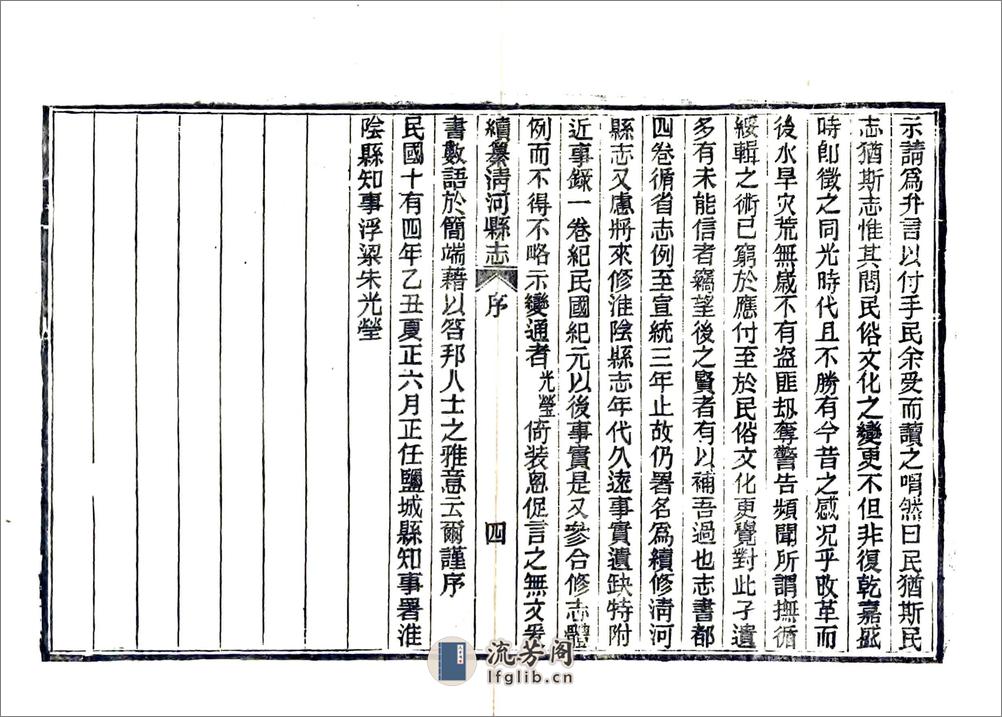 示請爲弁言以付手民余受而讀之喟然曰民猶斯民
志猶斯志惟其間民俗文化之變更不但非復乾嘉盛
時卽徵之同光時代且不勝有今昔之感况乎改革而
後水旱灾荒無歲不有盗匪刼奪警吿頻聞所謂撫循
綏輯之術已窮於應付至於民俗文化更覺對此孑遺
多有未能信者竊望後之賢者有以補吾過也志書都
四卷循省志例至宣統三年止故仍署名爲續修淸河
縣志又慮將來修淮陰縣志年代久遠事實遺缺特附
近事錄一卷紀民國紀元以後事實是又參合修志體
例而不得不略示變通者光瑩倚装怱促言之無文爰
續纂淸河縣志 序 四
書數語於簡端藉以答邦人士之雅意云爾謹序
民國十有四年乙丑夏正六月正任鹽城縣知事署淮
陰縣知事浮梁朱光瑩
流芳阁
lfglib.cn